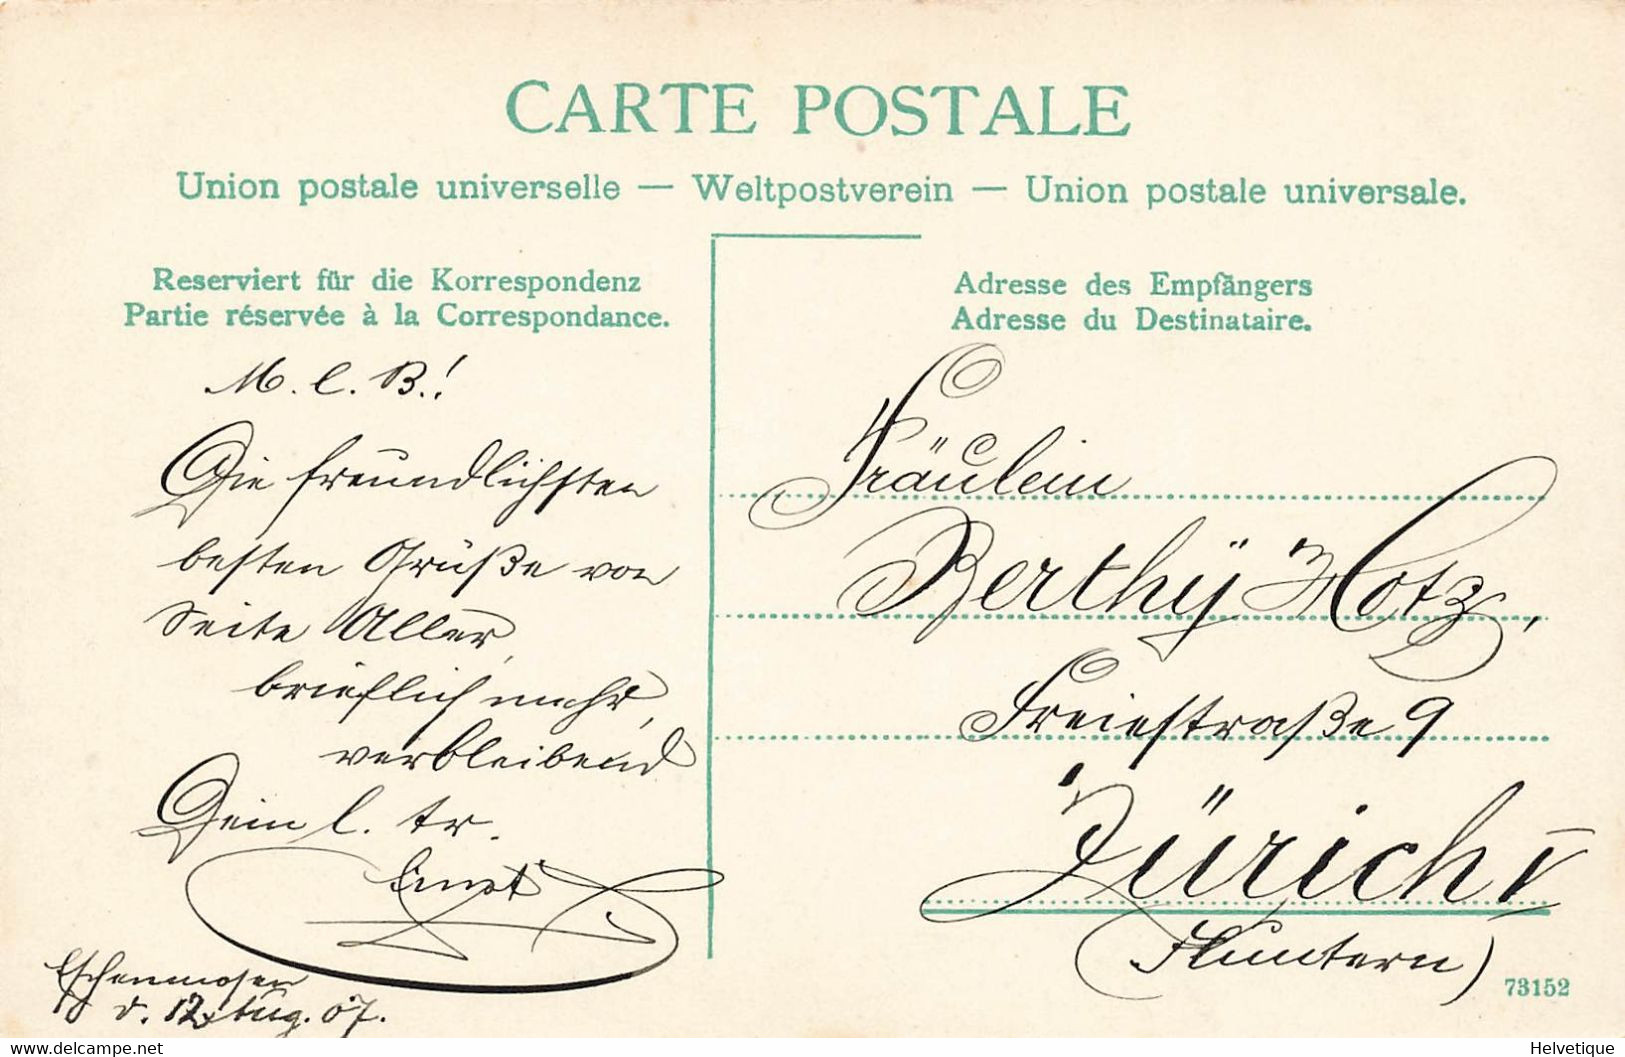 CARTE POSTALE
Union postale universelle — Weltpostverein — Union postale universale.
Reserviert für die Korrespondenz
Partie réservée à la Correspondance.
M. l. B.!
Die freundlichsten
besten Grüße von
Seite Aller,
brieflich mehr,
verbleibend
Dein l. tr.
Ernst
Eschenmosen
d. 12. Aug. 07.
Adresse des Empfängers
Adresse du Destinataire.
Fräulein
Berthÿ Hotz,
Freiestraße 9
Zürich V
(Fluntern)
73152
delcampe.net
Helvetique